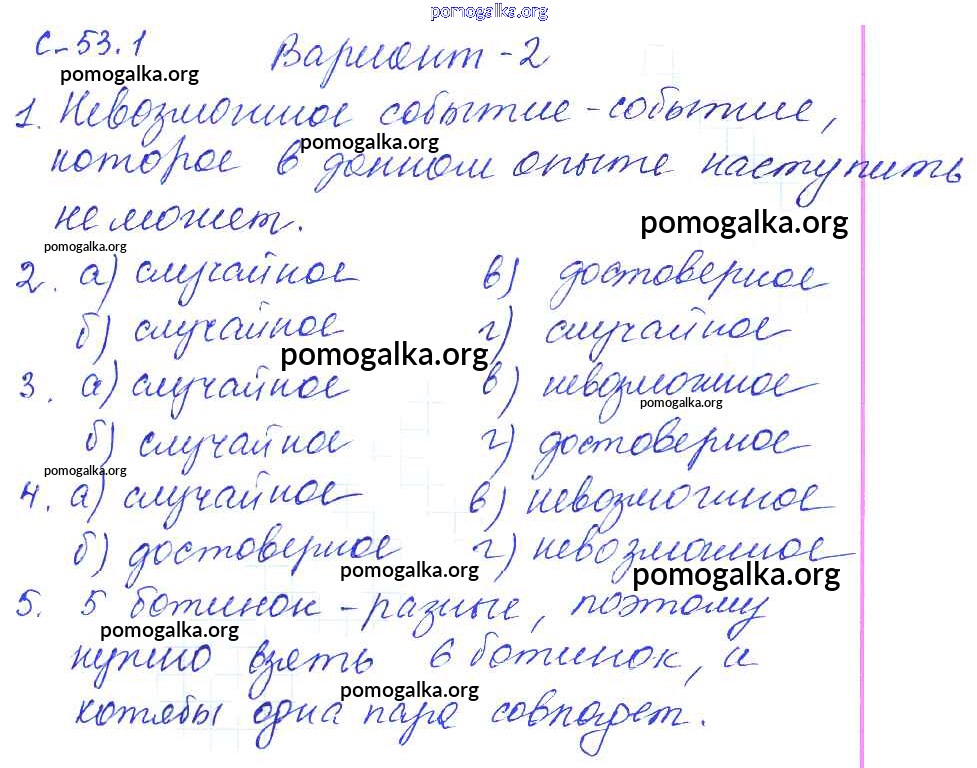 pomogalka.org
С-53.1 Вариант-2
pomogalka.org
1. Невозможное событие - событие,
pomogalka.org
которое в данном опыте наступить
не может.
pomogalka.org
pomogalka.org
2. а) случайное в) достоверное
б) случайное г) случайное
pomogalka.org
3. а) случайное в) невозможное
pomogalka.org
б) случайное г) достоверное
pomogalka.org
4. а) случайное в) невозможное
б) достоверное г) невозможное
pomogalka.org
pomogalka.org
5. 5 ботинок - разные, поэтому
pomogalka.org
нужно взять 6 ботинок, и
pomogalka.org
хотябы одна пара совпадет.